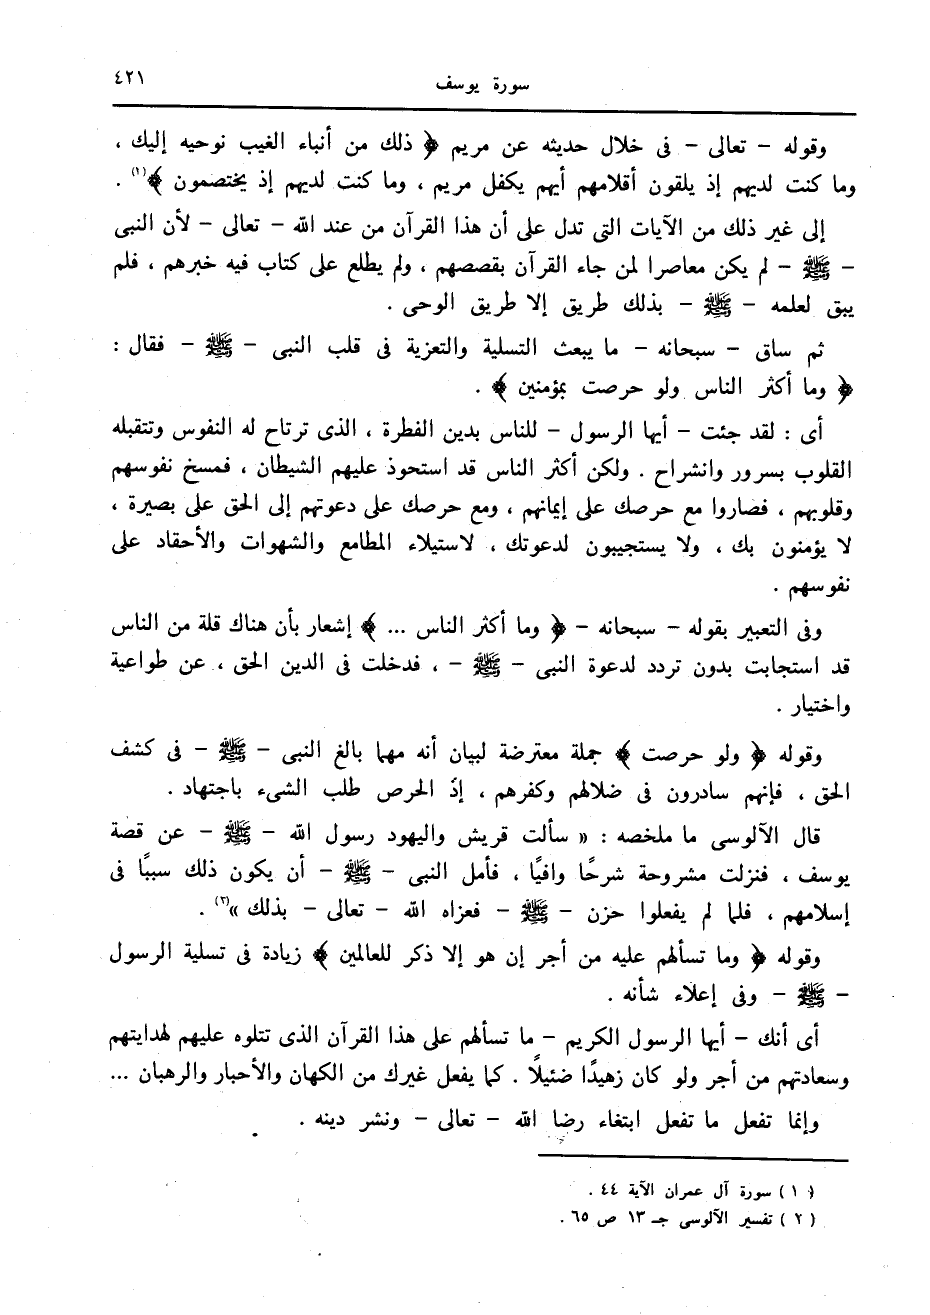 سورة يوسف ٤٢١
وقوله – تعالى – فى خلال حديثه عن مريم ﴿ ذلك من أنباء الغيب نوحيه إليك ،
وما كنت لديهم إذ يلقون أقلامهم أيهم يكفل مريم ، وما كنت لديهم إذ يختصمون ﴾(١) .
إلى غير ذلك من الآيات التى تدل على أن هذا القرآن من عند الله – تعالى – لأن النبى
– ﷺ – لم يكن معاصرا لمن جاء القرآن بقصصهم ، ولم يطلع على كتاب فيه خبرهم ، فلم
يبق لعلمه – ﷺ – بذلك طريق إلا طريق الوحى .
ثم ساق – سبحانه – ما يبعث التسلية والتعزية فى قلب النبى – ﷺ – فقال :
﴿ وما أكثر الناس ولو حرصت بمؤمنين ﴾ .
أى : لقد جئت – أيها الرسول – للناس بدين الفطرة ، الذى ترتاح له النفوس وتتقبله
القلوب بسرور وانشراح . ولكن أكثر الناس قد استحوذ عليهم الشيطان ، فمسخ نفوسهم
وقلوبهم ، فصاروا مع حرصك على إيمانهم ، ومع حرصك على دعوتهم إلى الحق على بصيرة ،
لا يؤمنون بك ، ولا يستجيبون لدعوتك ، لاستيلاء المطامع والشهوات والأحقاد على
نفوسهم .
وفى التعبير بقوله – سبحانه – ﴿ وما أكثر الناس ... ﴾ إشعار بأن هناك قلة من الناس
قد استجابت بدون تردد لدعوة النبى – ﷺ – ، فدخلت فى الدين الحق ، عن طواعية
واختيار .
وقوله ﴿ ولو حرصت ﴾ جملة معترضة لبيان أنه مهما بالغ النبى – ﷺ – فى كشف
الحق ، فإنهم سادرون فى ضلالهم وكفرهم ، إذ الحرص طلب الشىء باجتهاد .
قال الآلوسى ما ملخصه : « سألت قريش واليهود رسول الله – ﷺ – عن قصة
يوسف ، فنزلت مشروحة شرحًا وافيًا ، فأمل النبى – ﷺ – أن يكون ذلك سببًا فى
إسلامهم ، فلما لم يفعلوا حزن – ﷺ – فعزاه الله – تعالى – بذلك »(٢) .
وقوله ﴿ وما تسألهم عليه من أجر إن هو إلا ذكر للعالمين ﴾ زيادة فى تسلية الرسول
– ﷺ – وفى إعلاء شأنه .
أى أنك – أيها الرسول الكريم – ما تسألهم على هذا القرآن الذى تتلوه عليهم لهدايتهم
وسعادتهم من أجر ولو كان زهيدًا ضئيلًا . كما يفعل غيرك من الكهان والأحبار والرهبان ...
وإنما تفعل ما تفعل ابتغاء رضا الله – تعالى – ونشر دينه .
( ١ ) سورة آل عمران الآية ٤٤ .
( ٢ ) تفسير الآلوسى جـ ١٣ ص ٦٥ .